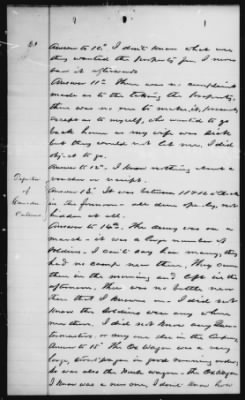 Answer to 10" I don't know what use
they wanted the property for I never
saw it afterwards
Answer 11" There was no complaint
made as to the taking the property,
there was no one to make it, 
except as to myself, who wanted to go
back home as my wife was sick
but they would not let me, I did
object to go.
Answer to 12", I know nothing about a
voucher or receipt.
Answer 13" It was between 11 & 12 o'clock
in the forenoon - all done openly, not
hidden at all.
Answer to 14th. The army was on a
march - it was a large number of
soldiers. I can't say how many, they
had no camp near there. They came
there in the morning and left in the
afternoon. There was no battle near
there that I know of - I did not
know the soldiers were any where
near there. I did not know any Quar-
termasters, or any one else in the Company
Answer to 15" The Ox Wagon was a very
large, strong wagon in good running order
So was also the Mule wagon - the Ox Wagon
I know was a new one, I don't know how
Deposition
of